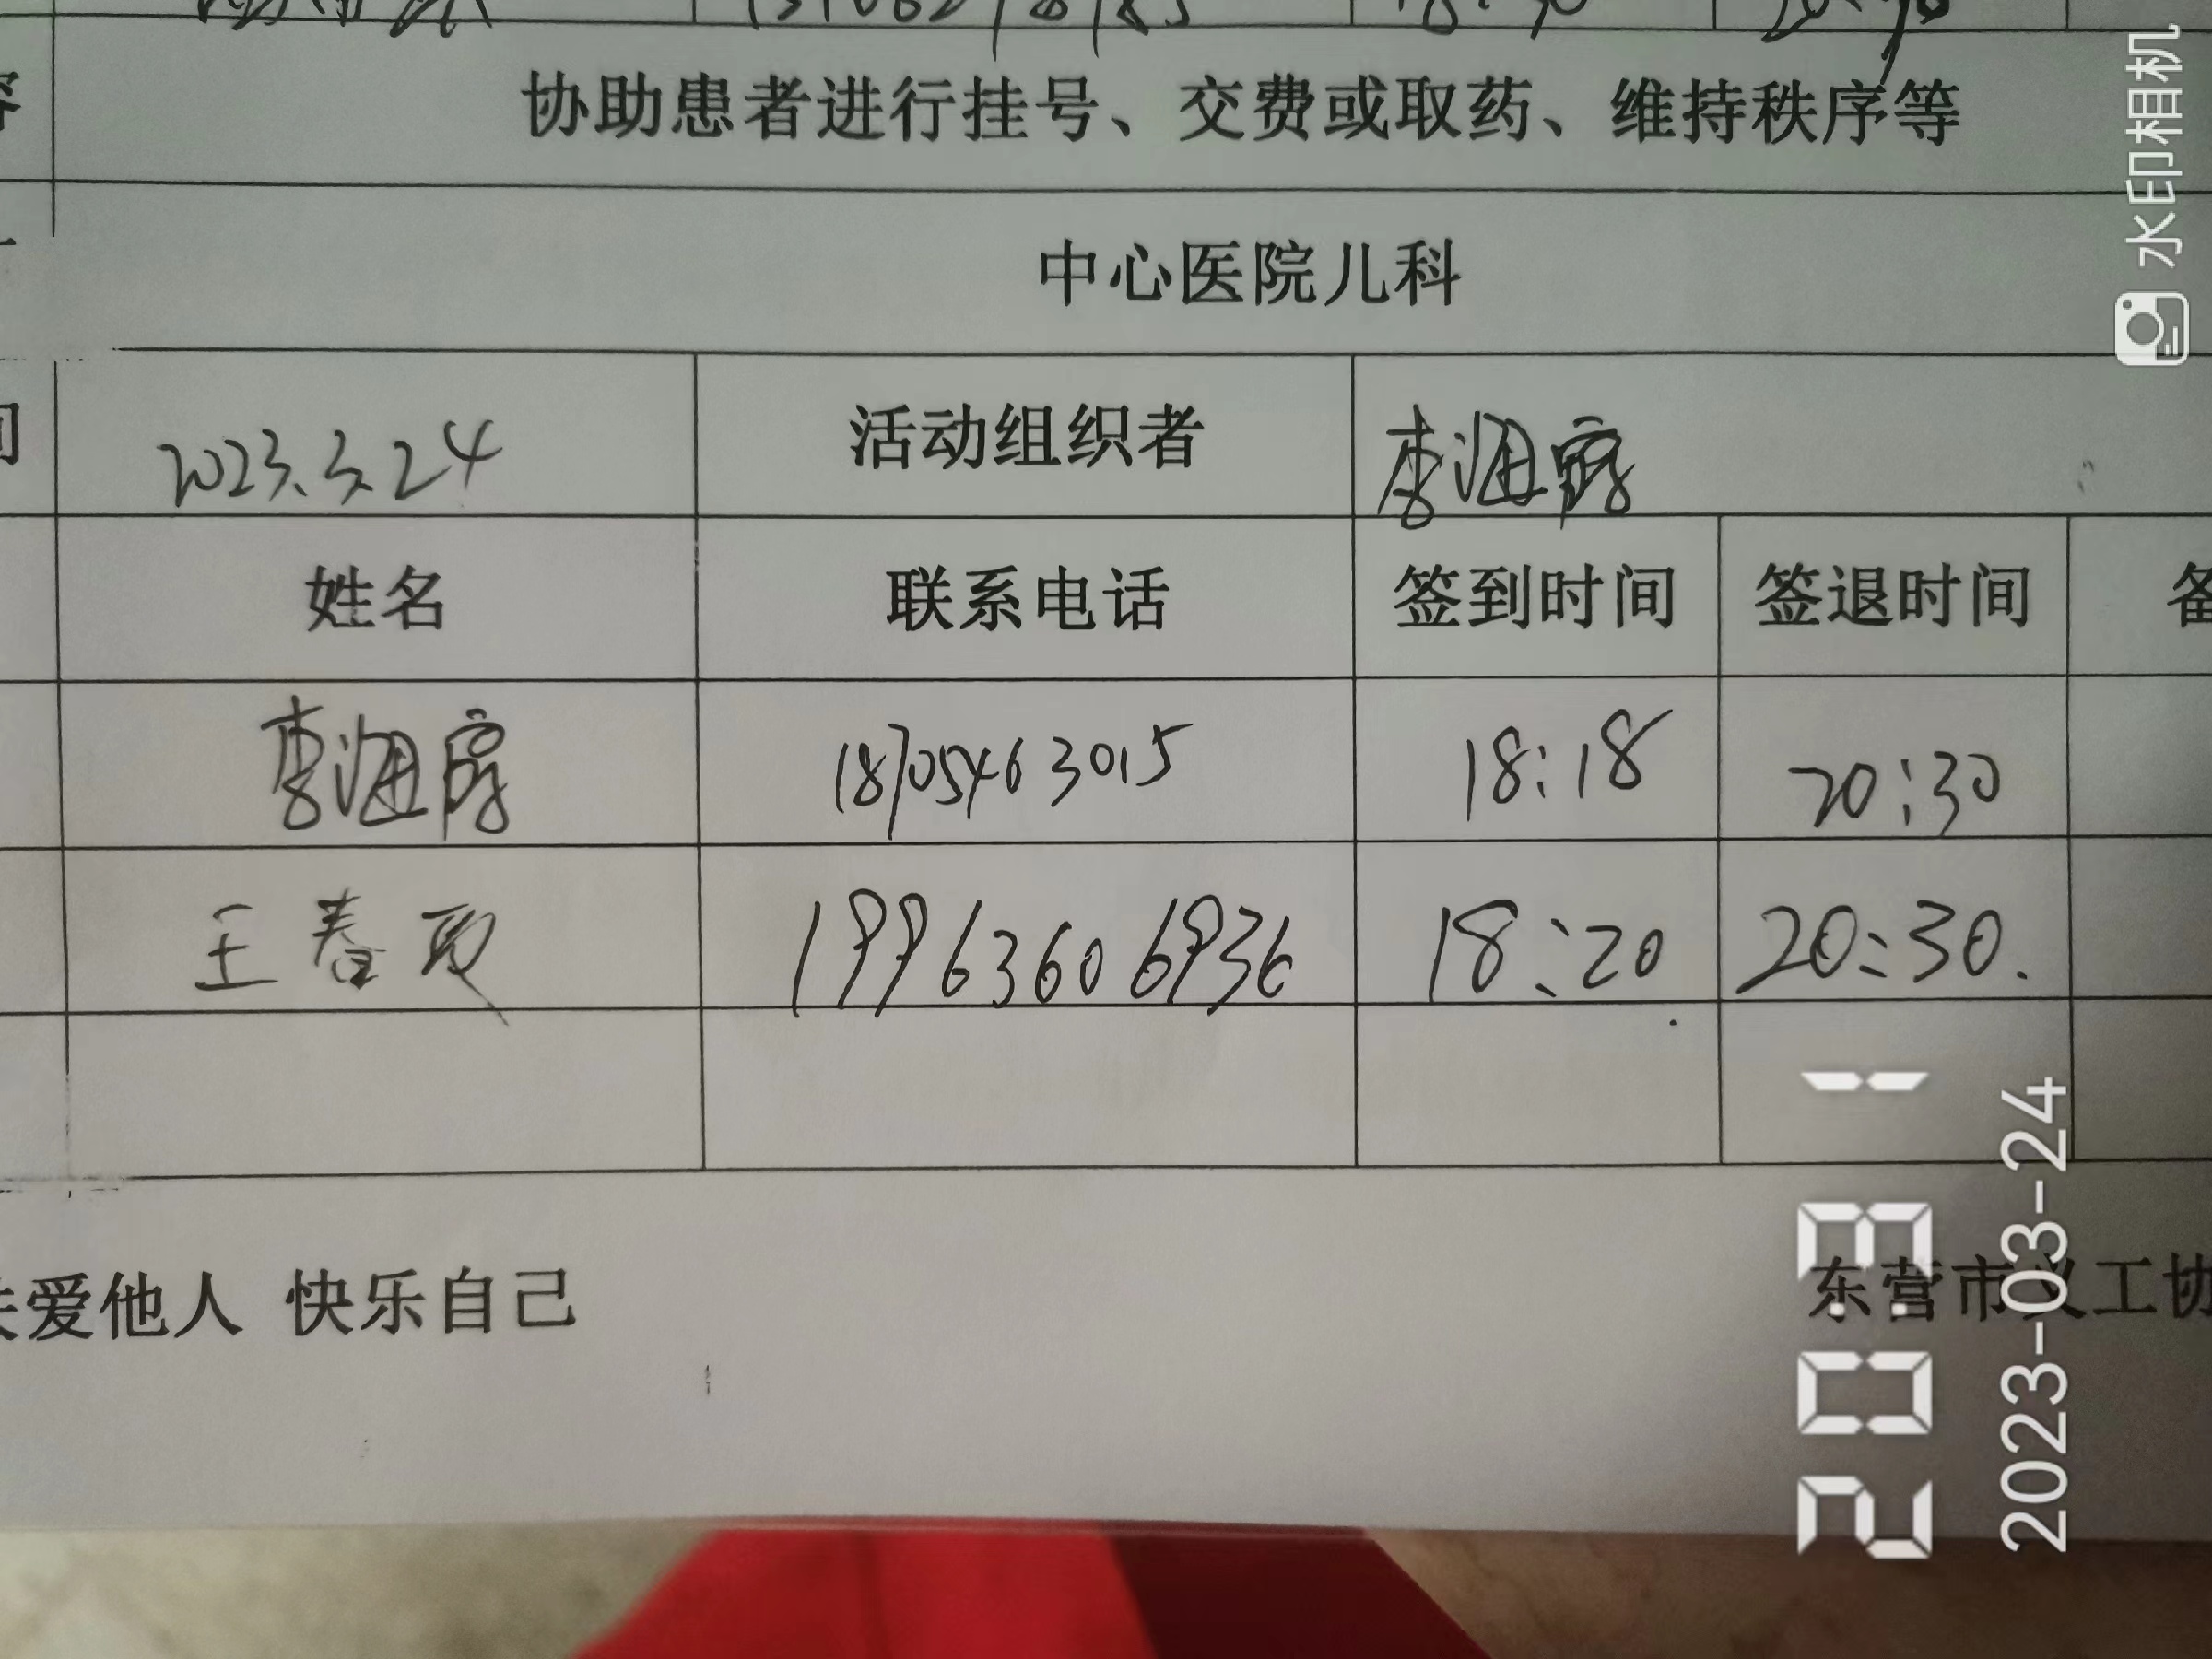 协助患者进行挂号、交费或取药、维持秩序等
中心医院儿科
2023.3.24 活动组织者 李海
姓名 联系电话 签到时间 签退时间
李海 18705463015 18:18 20:30
王春 19963606936 18:20 20:30.
爱他人 快乐自己 东营市义工协
水印相机
20:31
2023-03-24